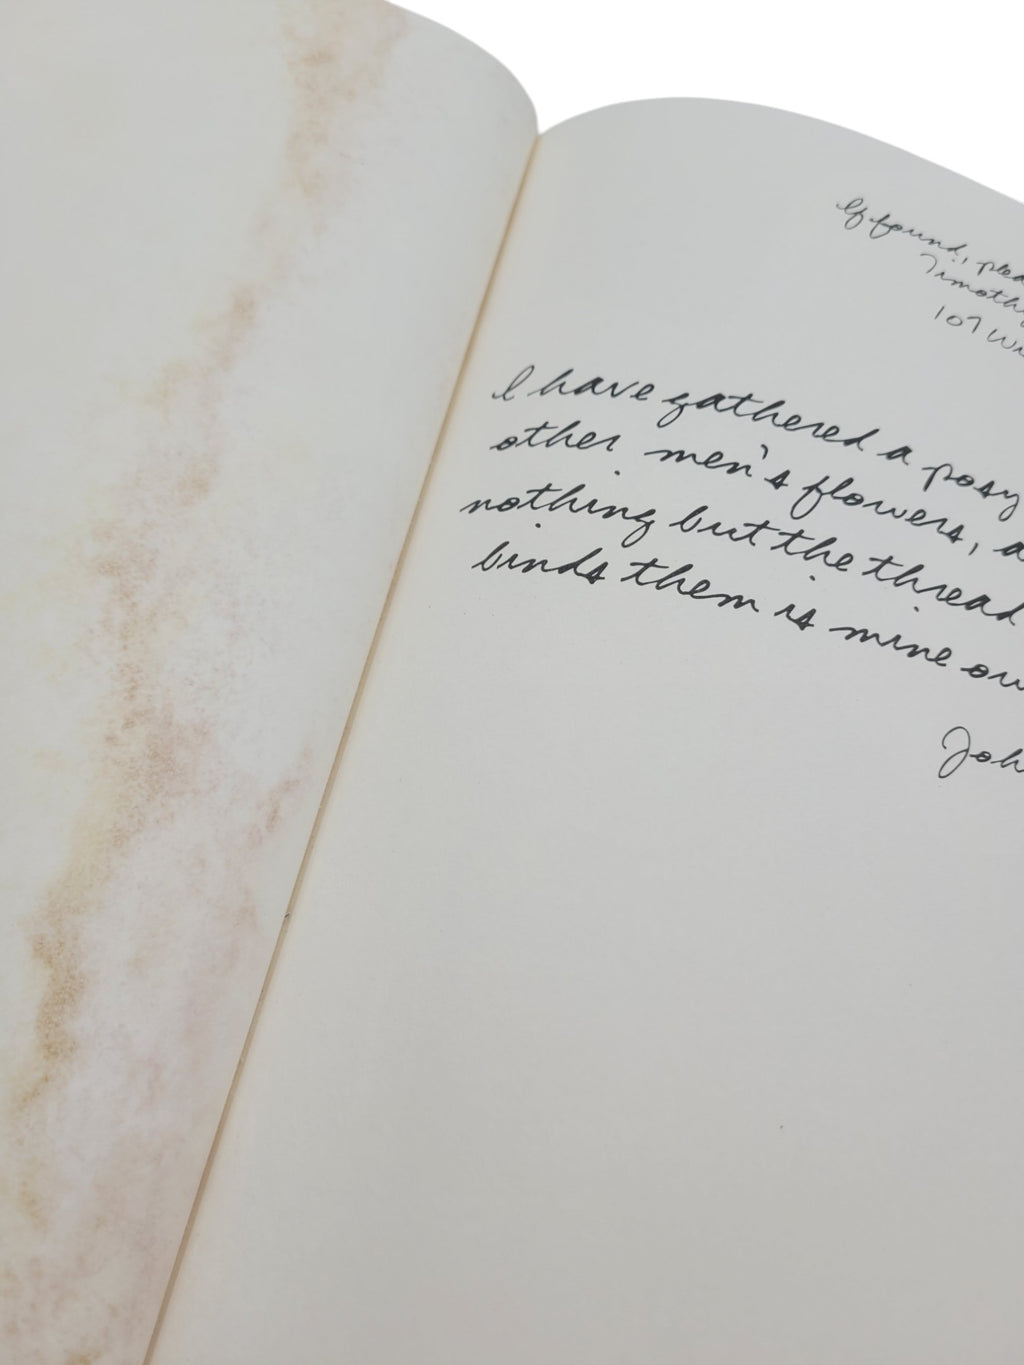 If found, plea
Timothy
107 Wi
I have gathered a posy
other men's flowers, a
nothing but the thread
binds them is mine ow
Joh